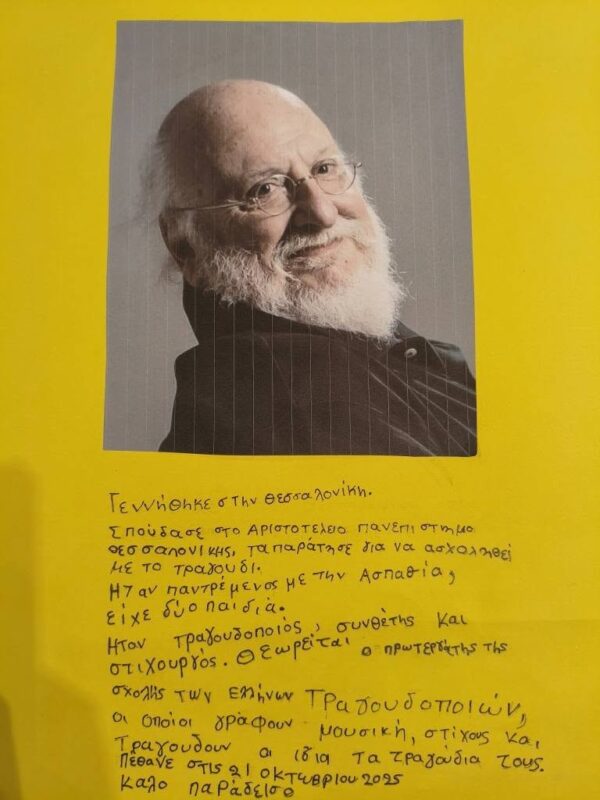 Γεννήθηκε στην Θεσσαλονίκη.
Σπούδασε στο Αριστοτέλειο πανεπιστημο
θεσσαλονικης, τα παράτησε για να ασχοληθεί
με το τραγουδι.
Ηταν παντρέμενος με την Ασπαθία,
είχε δύο παιδιά.
Ητον τραγουδοποιός, συνθέτης και
στιχουργός. Θεωρείται ο πρωτεργάτης της
σχολής των ελλήνων Τραγουδοποιών,
οι οποίοι γράφουν μουσική, στίχους και
Τραγουδουν οι ίδια τα τραγούδια τους.
Πέθανε στις 21 οκτωβριου 2025
Καλο παράδεισο